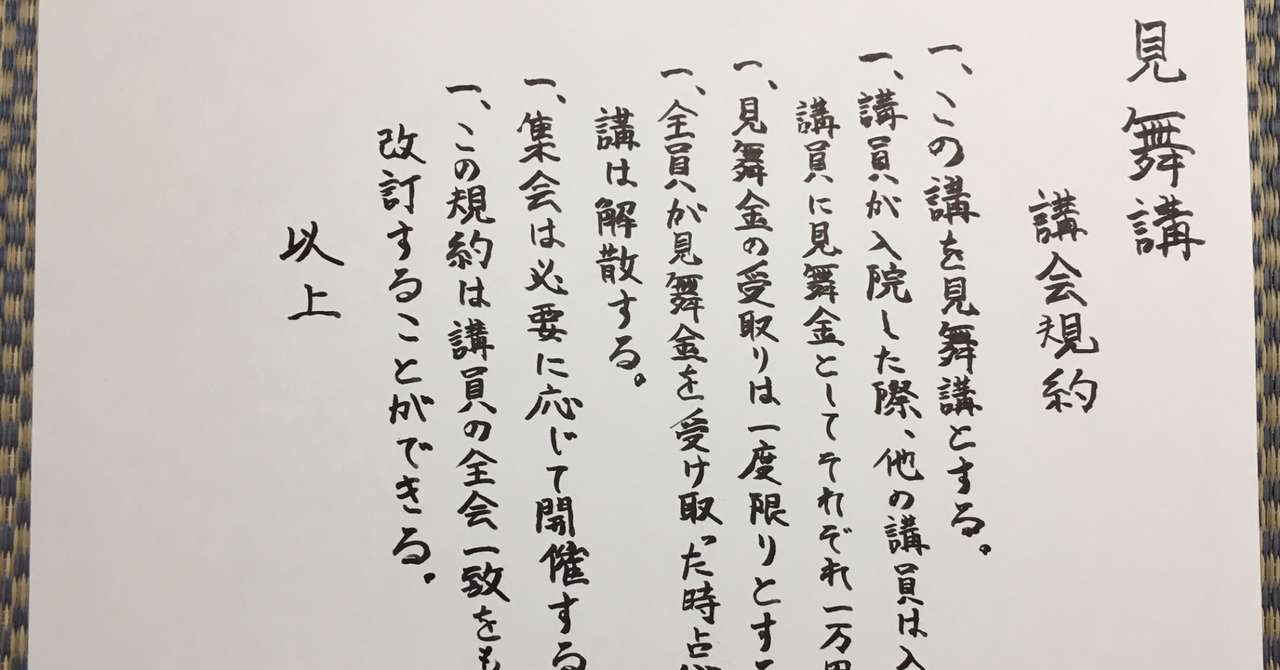 見舞講
講会規約
一、この講を見舞講とする。
一、講員が入院した際、他の講員は入
講員に見舞金としてそれぞれ一万円
一、見舞金の受取りは一度限りとする
一、全員が見舞金を受け取った時点
講は解散する。
一、集会は必要に応じて開催する
一、この規約は講員の全会一致をも
改訂することができる。
以上